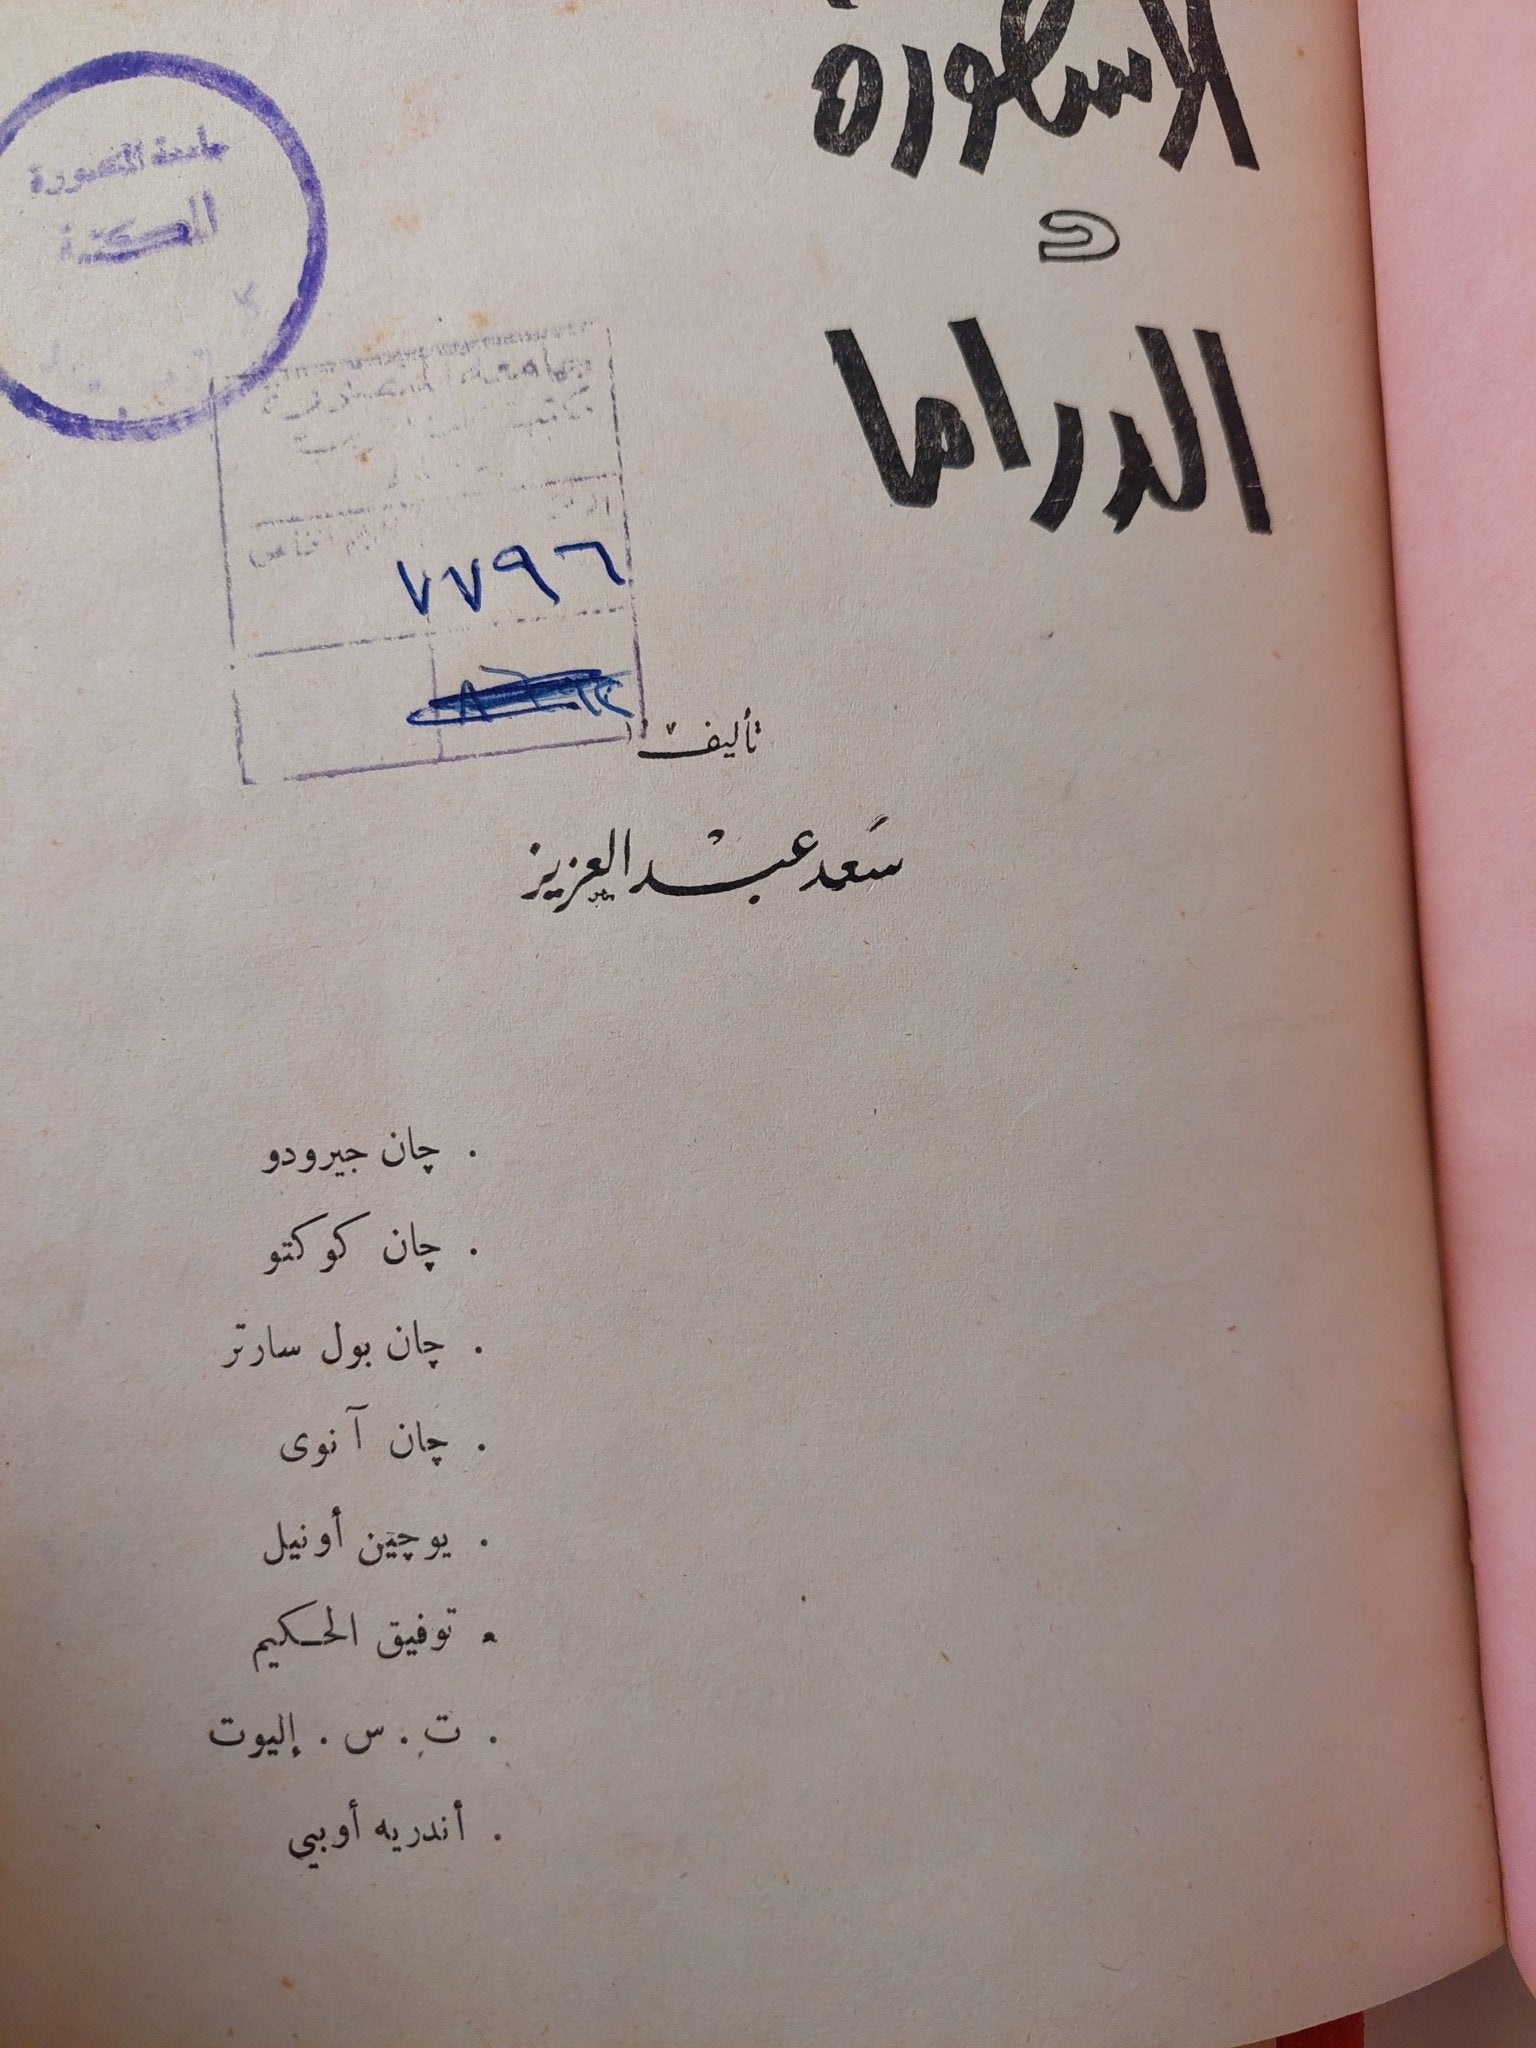 الاسطورة
و
الدراما
جامعة المنصورة
المكتبة
جامعة المنصورة
٧٧٩٦
تأليف
سَعد عبْد العزيز
. چان جيرودو
. چان كوكتو
. چان بول سارتر
. چان آنوى
. يوچين أونيل
. توفيق الحكيم
. ت . س . إليوت
. أندريه أوبي